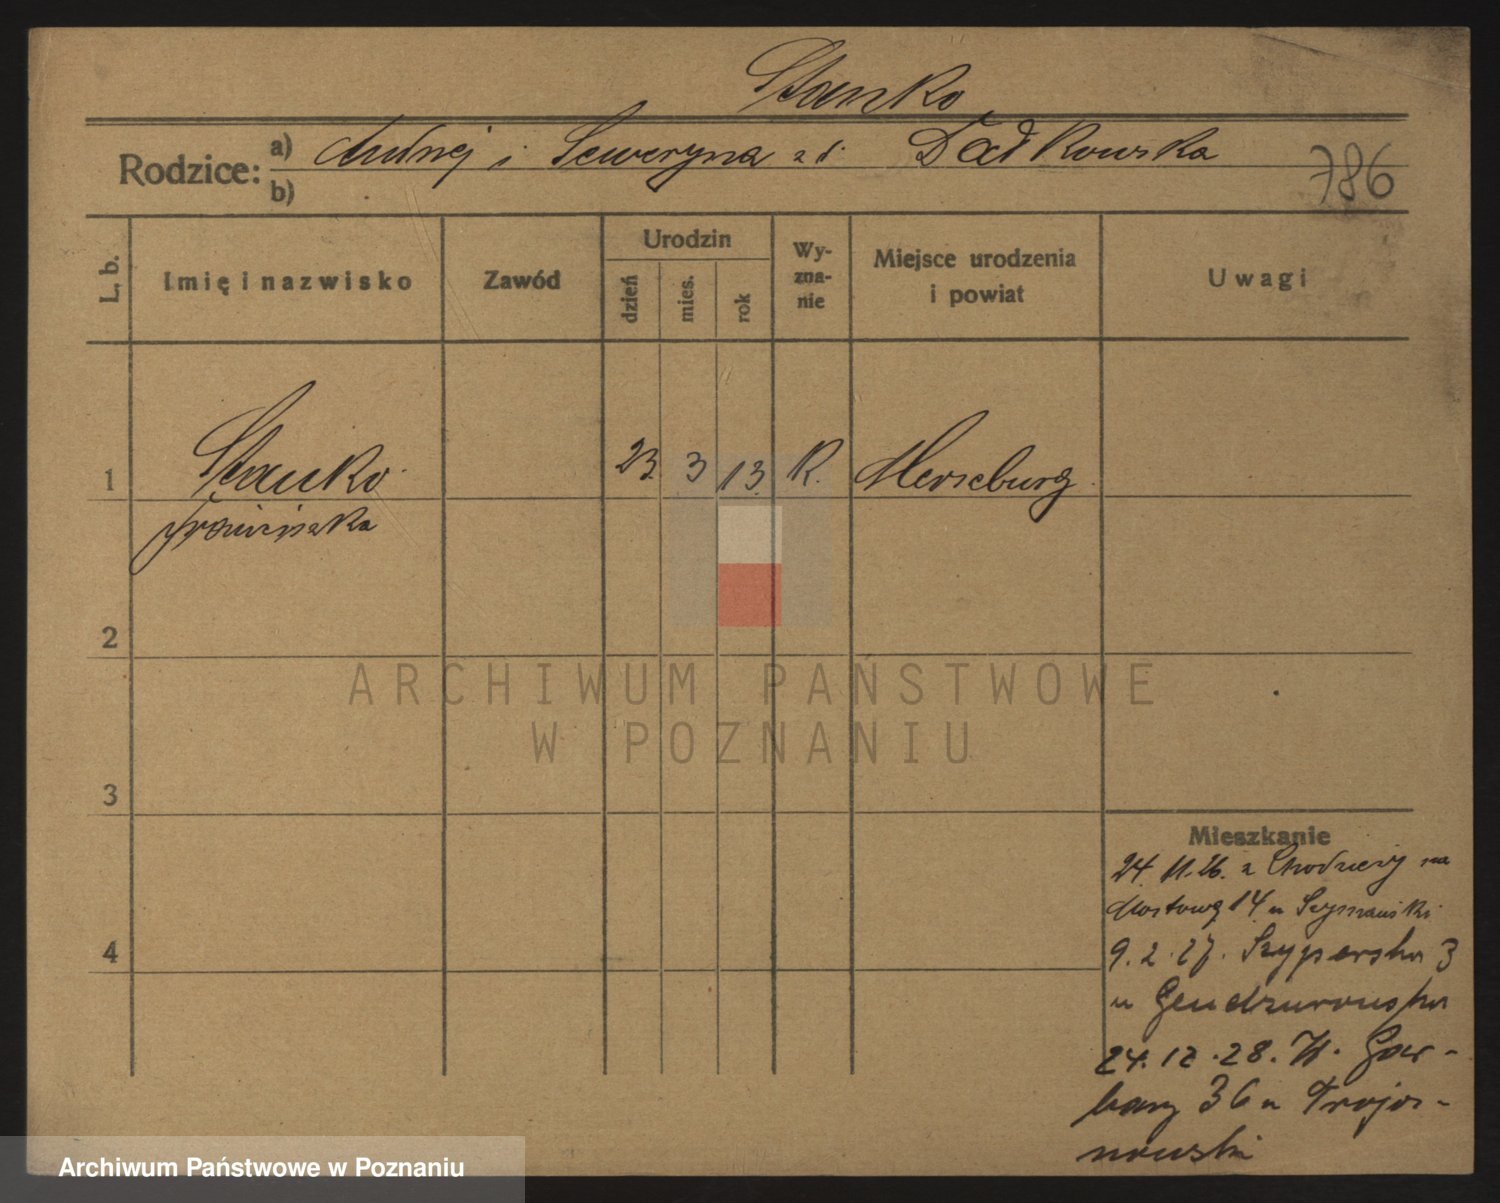 Stanko
Rodzice: a) Andrzej i Seweryna z d. Dadkowska
b)
786
L. b.
Imię i nazwisko
Zawód
Urodzin
dzień
mies.
rok
Wy-
zna-
nie
Miejsce urodzenia
i powiat
Uwagi
1 Stanko 23. 3 13. R. Merseburg
Franciszka
2
ARCHIWUM PAŃSTWOWE
W POZNANIU
3
Mieszkanie
24. 11. 26. z Chodzieży na
Mostową 14 u Szymański
4
9. 2. 27. Szyperska 3
u
24. 12. 28. W. Gar-
bary 36 u Troja-
nowski
Archiwum Państwowe w Poznaniu